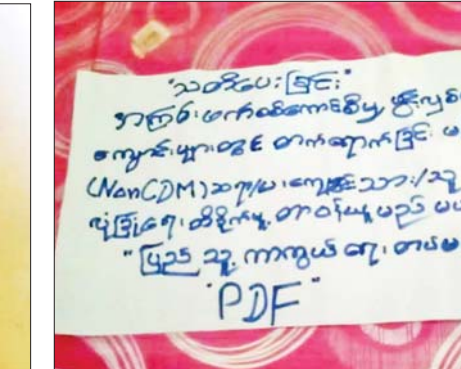 "သတိပေးခြင်း"
အကြမ်းဖက်စစ်ကောင်စီမှ ဖွင့်လှစ်
ကျောင်းများတွင် တက်ရောက်ခြင်း မ
(NonCDM) ဆရာ/မ၊ ကျောင်းသား/သူ
လုံခြုံရေး တိုက်ခိုက်မှု တာဝန်ယူမည် မဟ
"ပြည်သူ့ကာကွယ်ရေး တပ်မ
"PDF"